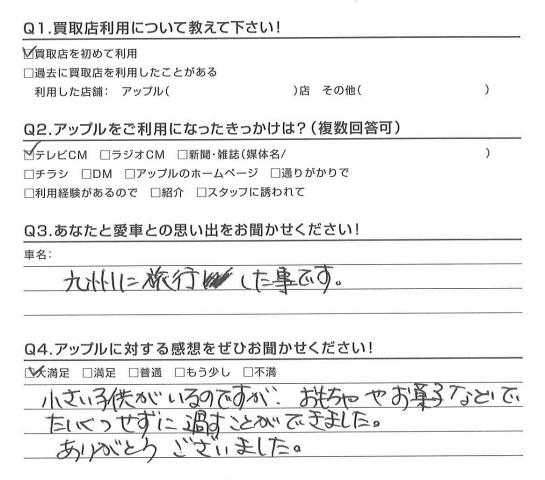 Q1.買取店利用について教えて下さい!
☑買取店を初めて利用
□過去に買取店を利用したことがある
利用した店舗: アップル( )店 その他( )
Q2.アップルをご利用になったきっかけは?(複数回答可)
☑テレビCM □ラジオCM □新聞・雑誌(媒体名/ )
□チラシ □DM □アップルのホームページ □通りがかりで
□利用経験があるので □紹介 □スタッフに誘われて
Q3.あなたと愛車との思い出をお聞かせください!
車名:
九州に旅行した事です。
Q4.アップルに対する感想をぜひお聞かせください!
☑大満足 □満足 □普通 □もう少し □不満
小さい子供がいるのですが、おもちゃやお菓子などで
たいくつせずに過すことができました。
ありがとうございました。